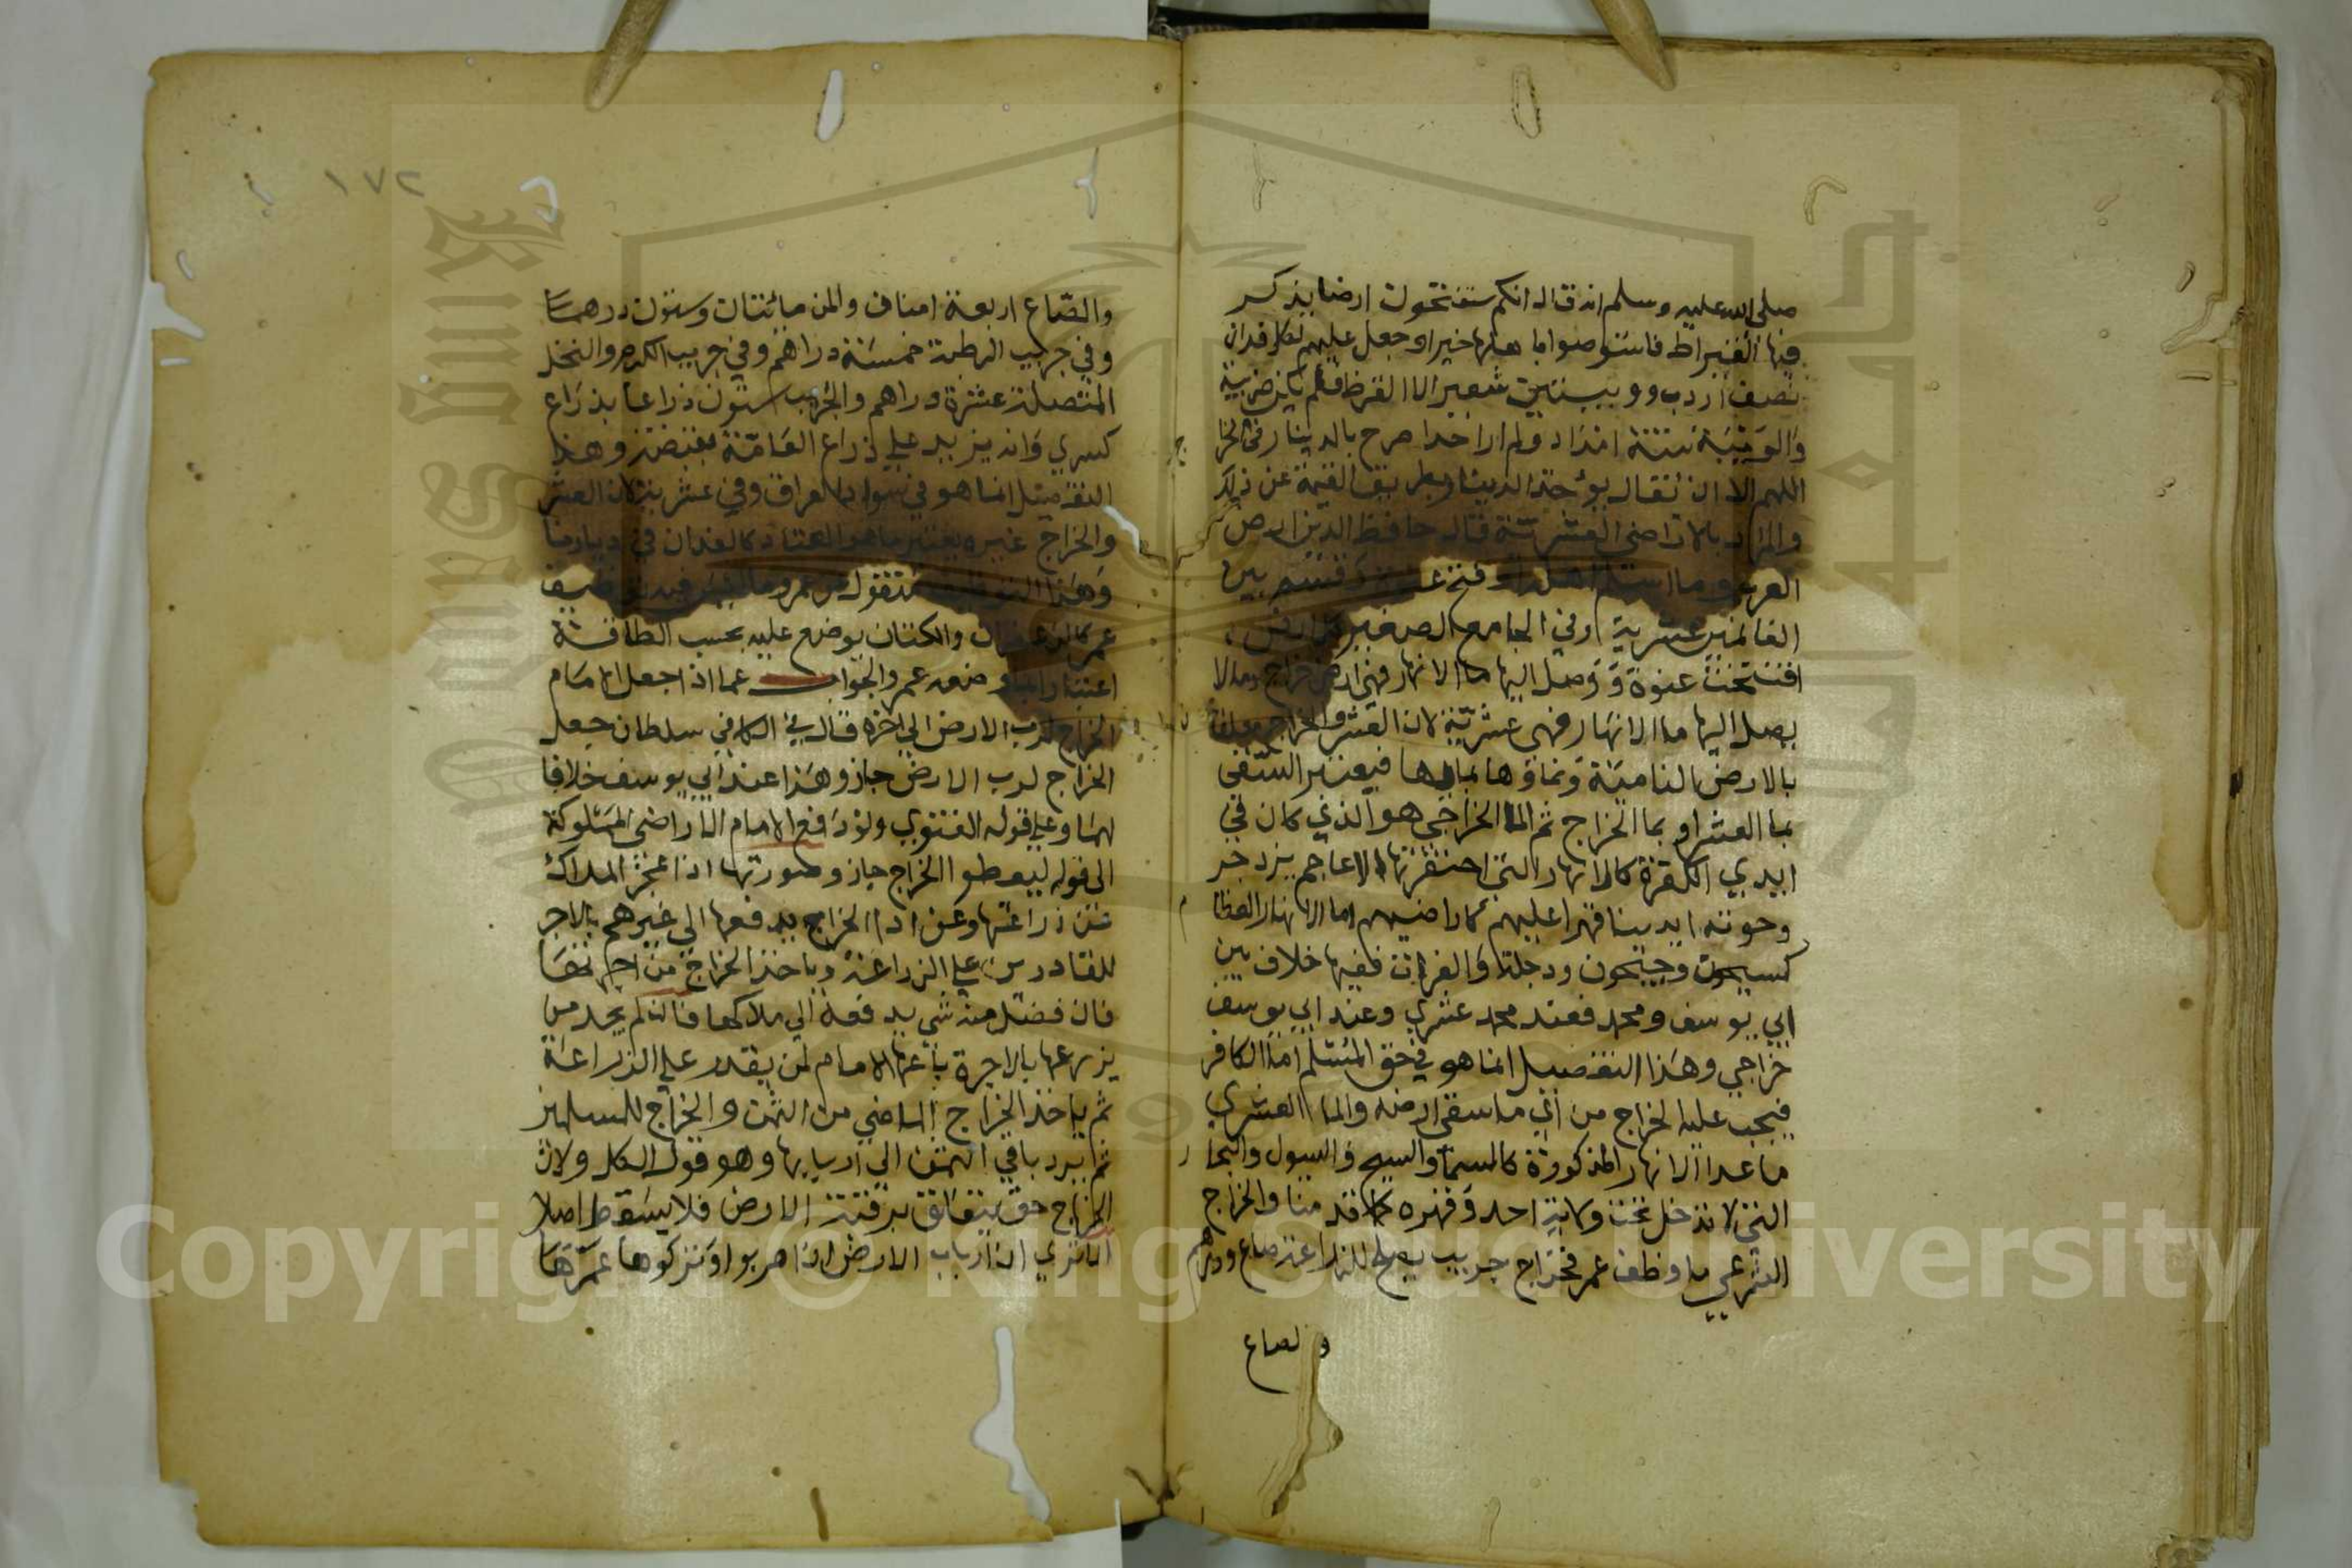 صلى الله عليه وسلم انه قال انكم ستفتحون ارضا يذكر
فيها القيراط فاستوصوا باهلها خيرا وجعل عليهم لكل فدان
نصف اردب وويبتين شعير الا القرظ فلم يكن ضريبة
والويبة ستة امداد ولم ار احدا صرح بالدينار في الخرا
اللهم الا ان يقال يؤخذ الدينار بطريق القيمة عن ذلك
والمراد بالاراضي العشرية قال حافظ الدين ارض
العرب وما اسلم اهله او فتح عنوة وقسم بين
الغانمين عشرية وفي الجامع الصغير كل ارض
افتتحت عنوة ووصل اليها ما الانهار فهي ارض خراج وما لا
يصل اليها ما الانهار فهي عشرية لان العشر والخراج يتعلق
بالارض النامية ونماؤها بمايها فيعتبر السقى
بما العشر او بما الخراج ثم الما الخراجي هو الذي كان في
ايدي الكفرة كالانهار التي احتفرتها الاعاجم يزدجر
وحوته ايدينا قهرا عليهم كاراضيهم اما الانهار العظا
كسيحون وجيحون ودجلة والفرات ففيها خلاف بين
ابي يوسف ومحمد فعند محمد عشري وعند ابي يوسف
خراجي وهذا التفصيل انما هو في حق المسلم اما الكافر
فيجب عليه الخراج من اي ما سقى ارضه والما العشري
ما عدا الانهار المذكورة كالسما والسيح والسيول والبحا
التي لا تدخل تحت ولاية احد وقهره كما قدمنا والخراج
الشرعي ما وظف عمر فخراج جريب يصلح للزراعة صاع ودرهم
والصاع
١٧٢
والصاع اربعة امنان والمن مائتان وستون درهما
وفي جريب الرطبة خمسة دراهم وفي جريب الكرم والنخل
المتصلة عشرة دراهم والجريب ستون ذراعا بذراع
كسري وانه يزيد على ذراع العامة بقبضة وهذا
التفصيل انما هو في سواد العراق وفي عشرية لان العشر
والخراج غيره يعتبر ما هو المعتاد كالفدان في ديارنا
وهذا التوظيف منقول عن عمر وما ليس فيه توظيف
عمر كالزعفران والكتان يوضع عليه بحسب الطاقة
اعتبارا بما وضعه عمر والجواب عما اذا جعل الامام
الخراج لرب الارض الى اخره قال في الكافي سلطان جعل
الخراج لرب الارض جاز وهذا عند ابي يوسف خلافا
لهما وعلى قوله الفتوي ولو دفع الامام الاراضي المملوكة
الى قوله ليعطوا الخراج جاز وصورتها اذا عجز الملاك
عن زراعتها وعن ادا الخراج يدفعها الى غيرهم بالاجر
للقادرين على الزراعة وياخذ الخراج من اجرتها
فان فضل منه شي يدفعه الى ملاكها فان لم يجد من
يزرعها بالاجرة باعها الامام لمن يقدر على الزراعة
ثم ياخذ الخراج الماضي من الثمن والخراج للمسلمين
ثم يرد باقي الثمن الى اربابها وهو قول الكل ولان
الخراج حق يتعلق برقبة الارض فلا يسقط اصلا
الا تري ان ارباب الارض اذا هربوا وتركوها عمرها
Copyright © King Saud University